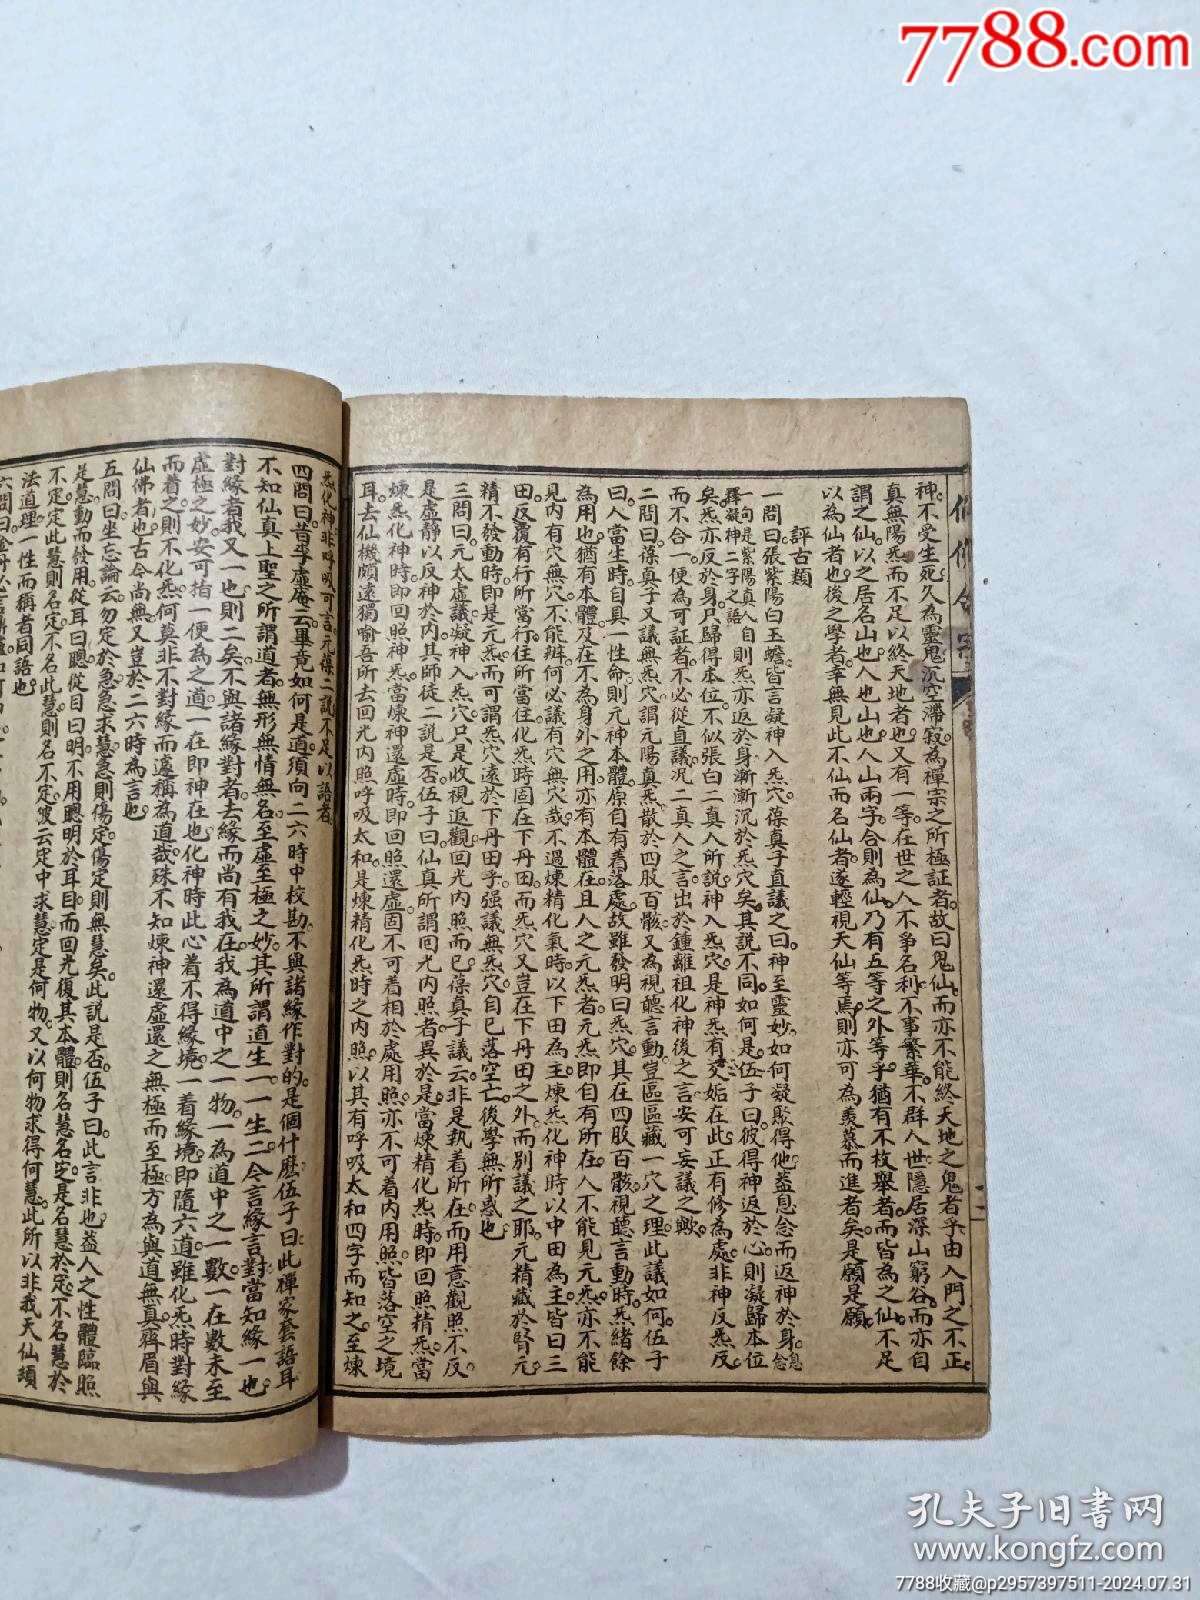 7788.com
神不受生死久為靈鬼沉空滯寂為禪宗之所極証者故曰鬼仙而亦不能終天地之鬼者乎由入門之不正
真無陽炁而不足以終天地者也又有一等在世之人不爭名利不事繁華不群人世隱居深山窮谷而亦自
謂之仙以之居名山也人也山也人山兩字合則為仙乃有五等之外等乎猶有不枚舉者而皆為之仙不足
以為仙者也後之學者幸無見此不仙而名仙者遂輕視天仙等焉則亦可為羨慕而進者矣是願是願
評古類
一問曰張紫陽白玉蟾皆言凝神入炁穴葆真子直議之曰神至靈妙如何凝聚得他蓋息念而返神於身息念
一句是紫陽真人自
釋凝神二字之語
則炁亦返於身漸漸沉於炁穴矣其說不同如何是伍子曰彼得神返於心則凝歸本位
矣炁亦反於身只歸得本位不似張白二真人所說神入炁穴是神炁有交姤在此正有修為處非神反炁反
而不合一便為可証者不必從直議況二真人之言出於鍾離祖化神後之言安可妄議之歟
二問曰葆真子又議無炁穴謂元陽真炁散於四肢百骸又為視聽言動豈區區藏一穴之理此議如何伍子
曰人當生時自具一性命則元神本體原自有着落處故雖發明曰炁穴其在四股百骸視聽言動時炁緒餘
為用也猶有本體及在不為身外之用亦有本體在且人之元炁者元炁即自有所在人不能見元炁亦不能
見內有穴無穴不能辨何必議有穴無穴哉不過煉精化氣時以下田為主煉炁化神時以中田為主皆曰三
田反覆有行所當行住所當住化炁時固在下丹田而炁穴又豈在下丹田之外而別議之耶元精藏於腎元
精不發動時即是元炁而可謂炁穴遠於下丹田乎強議無炁穴自已落空亡後學無所惑也
三問曰元太虛議凝神入炁穴只是收視返觀回光內照而已葆真子議云非是執着所在而用意觀照不反
是虛靜以反神於內其師徒二說是否伍子曰仙真所謂回光內照者異於是當煉精化炁時即回照精炁當
煉炁化神時即回照神炁當煉神還虛時即回照還虛固不可着相於處用照亦不可着內用照皆落空之境
耳去仙機頗遠獨喻吾所去回光內照呼吸太和是煉精化炁時之內照以其有呼吸太和四字而知之至煉
炁化神非呼吸可言元葆二說不足以語者
四問曰昔李虛庵云畢竟如何是道須向二六時中校勘不與諸緣作對的是個什麼伍子曰此禪家套語耳
不知仙真上聖之所謂道者無形無情無名至虛至極之妙其所謂道生一一生二今言緣言對當知緣一也
對緣者我又一也則二矣不與諸緣對者去緣而尚有我在我為道中之一物一為道中之一數一在數未至
虛極之妙安可指一便為之道一在即神在也化神時此心着不得緣境一着緣境即隨六道雖化炁時對緣
而着之則不化炁何莫非不對緣而遽稱為道哉殊不知煉神還虛還之無極而至極方為與道無真齊眉與
仙佛者也古今尚無又豈於二六時為言也
五問曰坐忘論云勿定於急急求慧急則傷定傷定則無慧矣此說是否伍子曰此言非也蓋人之性體臨照
是慧動而發用從耳曰聰從目曰明不用聰明於耳目而回光復其本體則名慧名定是名慧於定不名慧於
不定定此慧則名定不名此慧則名不定彼云定中求慧定是何物又以何物求得何慧此所以非我天仙頭
法道理一性而稱者同語也
孔夫子旧書网
www.kongfz.com
7788收藏@p2957397511-2024.07.31